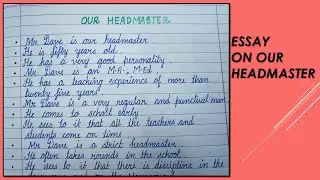 OUR HEADMASTER
Mr. Dave is our headmaster
He is fifty years old.
He has a very good personality
Mr. Dave is an M.A., M.Ed.
He has a teaching experience of more than
twenty five years.
Mr. Dave is a very regular and punctual man
He comes to school early.
He sees to it that all the teachers and
students come on time
Mr. Dave is a strict headmaster
He often takes rounds in the school
He sees to it that there is discipline in the
ESSAY
ON OUR
HEADMASTER